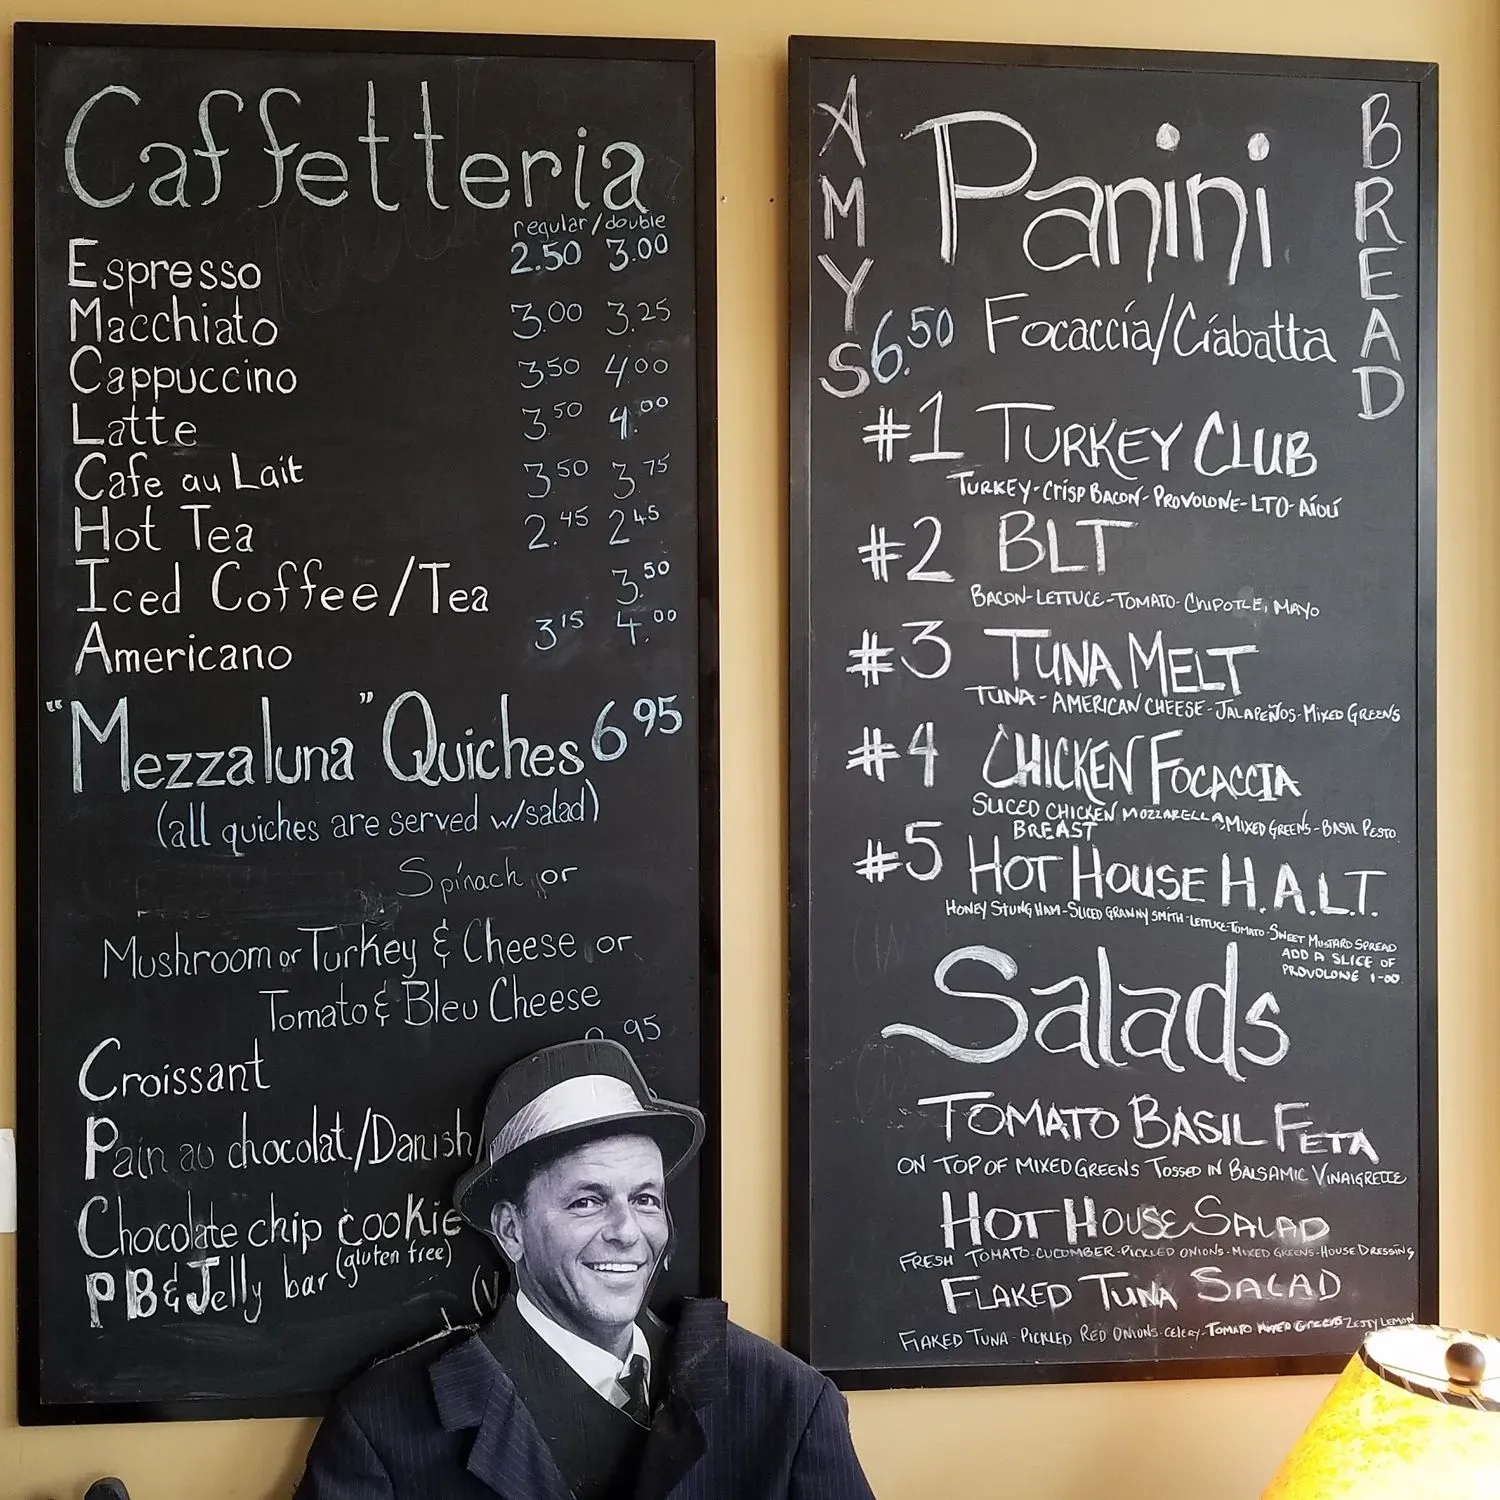 Caffetteria
regular/double
Espresso 2.50 3.00
Macchiato 3.00 3.25
Cappuccino 3.50 4.00
Latte 3.50 4.00
Cafe au Lait 3.50 3.75
Hot Tea 2.45 2.45
Iced Coffee/Tea 3.50
Americano 3.15 4.00
"Mezzaluna" Quiches 6.95
(all quiches are served w/salad)
Spinach or
Mushroom or Turkey & Cheese or
Tomato & Bleu Cheese
Croissant .95
Pain au chocolat/Danish/
Chocolate chip cookie
(gluten free)
PB&Jelly bar
AMYS
BREAD
Panini
6.50 Focaccia/Ciabatta
#1 TURKEY CLUB
TURKEY-CRISP BACON-PROVOLONE-LTO-AÏOLÍ
#2 BLT
BACON-LETTUCE-TOMATO-CHIPOTLE, MAYO
#3 TUNA MELT
TUNA-AMERICAN CHEESE-JALAPEÑOS-MIXED GREENS
#4 CHICKEN FOCACCIA
SLICED CHICKEN MOZZARELLA MIXED GREENS-BASIL PESTO
BREAST
#5 HOT HOUSE H.A.L.T.
HONEY STUNG HAM-SLICED GRANNY SMITH-LETTUCE-TOMATO-SWEET MUSTARD SPREAD
ADD A SLICE OF
PROVOLONE 1-00
Salads
TOMATO BASIL FETA
ON TOP OF MIXED GREENS TOSSED IN BALSAMIC VINAIGRETTE
HOT HOUSE SALAD
FRESH TOMATO-CUCUMBER-PICKLED ONIONS-MIXED GREENS-HOUSE DRESSING
FLAKED TUNA SALAD
FLAKED TUNA-PICKLED RED ONIONS-CELERY-TOMATO MIXED GREENS ZESTY LEMON